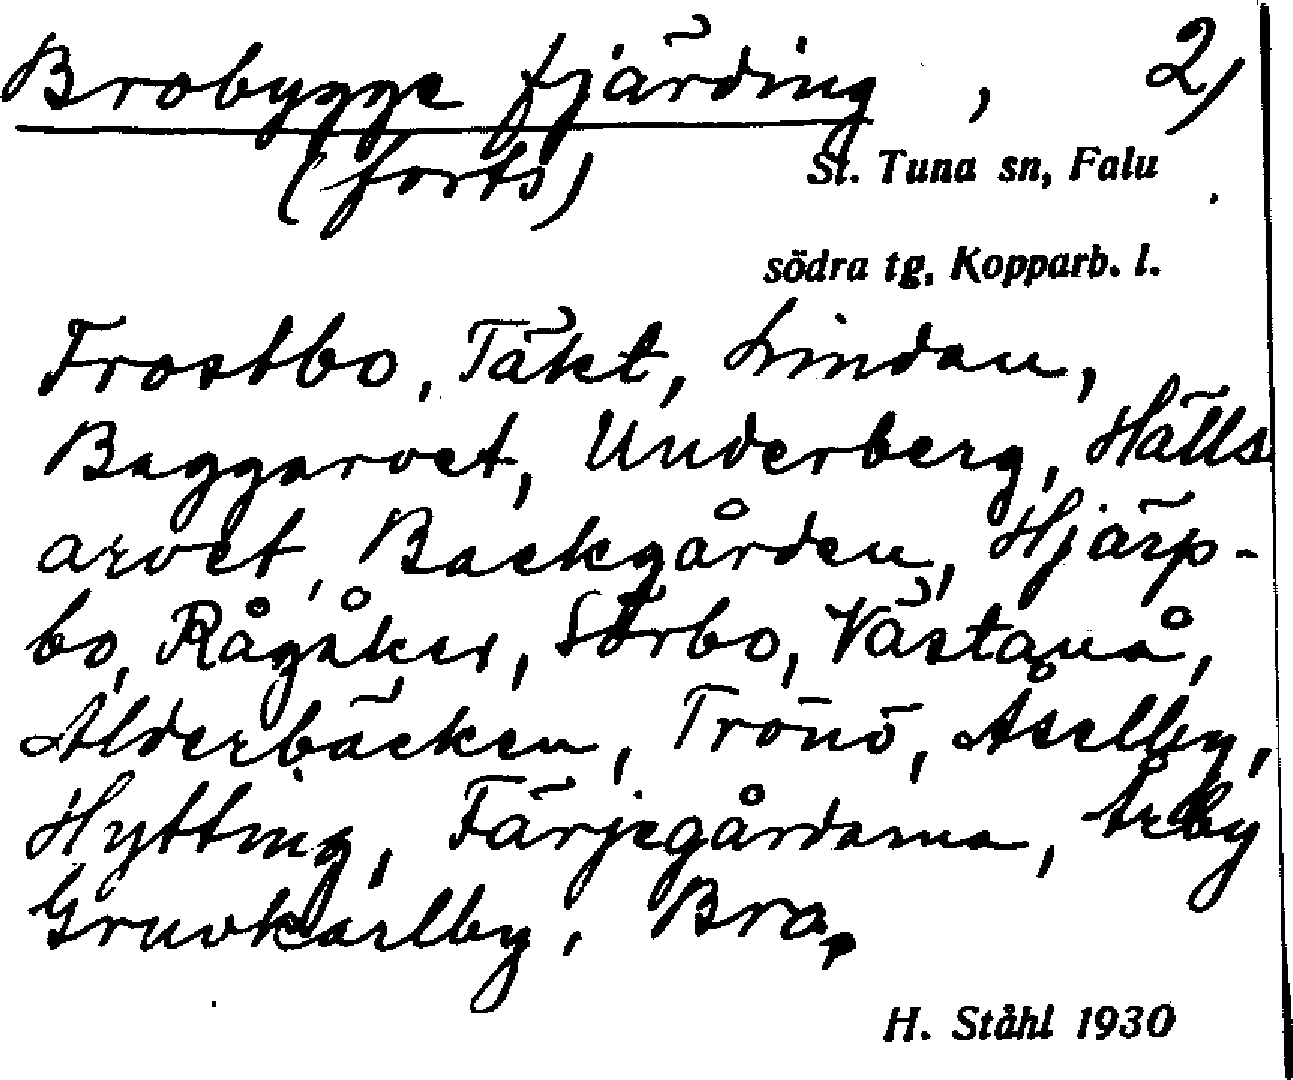 Brobygge fjärding, 2)
(forts)
St. Tuna sn, Falu
södra tg, Kopparb. l.
Frostbo, Täkt, Lindan,
Baggarvet, Underberg, Hälls
arvet, Backgården, Hjärp-
bo, Rågåker, Sörbo, Västanå,
Alderbäcken, Trönö, Åselby,
Hytting, Färjegårdarna, Årby
Gruvkarlby, Bro,
H. Ståhl 1930